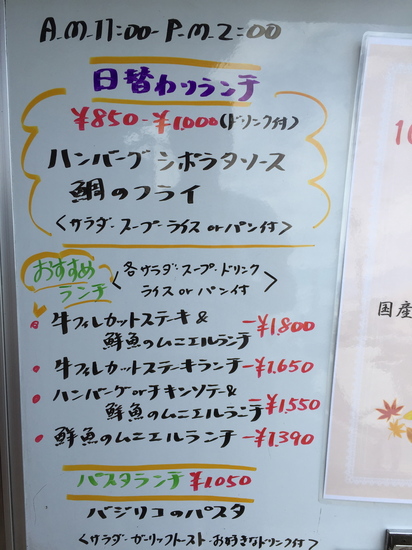 A.M.11:00-P.M.2:00
日替わりランチ
¥850-¥1,000(ドリンク付)
ハンバーグシポラタソース
鯛のフライ
<サラダ・スープ・ライス or パン付>
おすすめ
ランチ
<各サラダ・スープ・ドリンク
ライス or パン付>
牛フィレカットステーキ&
鮮魚のムニエルランチ -¥1,800
牛フィレカットステーキランチ-¥1,650
ハンバーグ or チキンソテー&
鮮魚のムニエルランチ -¥1,550
鮮魚のムニエルランチ -¥1,390
パスタランチ ¥1,050
バジリコのパスタ
<サラダ・ガーリックトースト・お好きなドリンク付>
10
国産